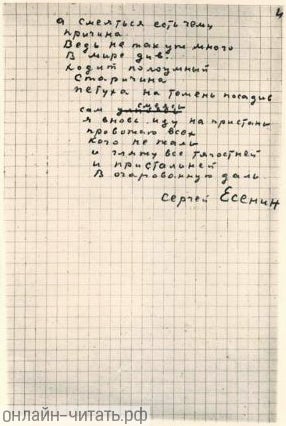 4
а смеяться есть чему
причина
Ведь не так уж много
В мире див.
Ходит полоумный
Старичина
петуха на темень посадив
смеясь
сам
я вновь иду на пристань
провожаю всех
Кого не жаль
и гляжу все тягостней
и пристальней
В очарованную даль
Сергей Есенин
онлайн-читать.рф